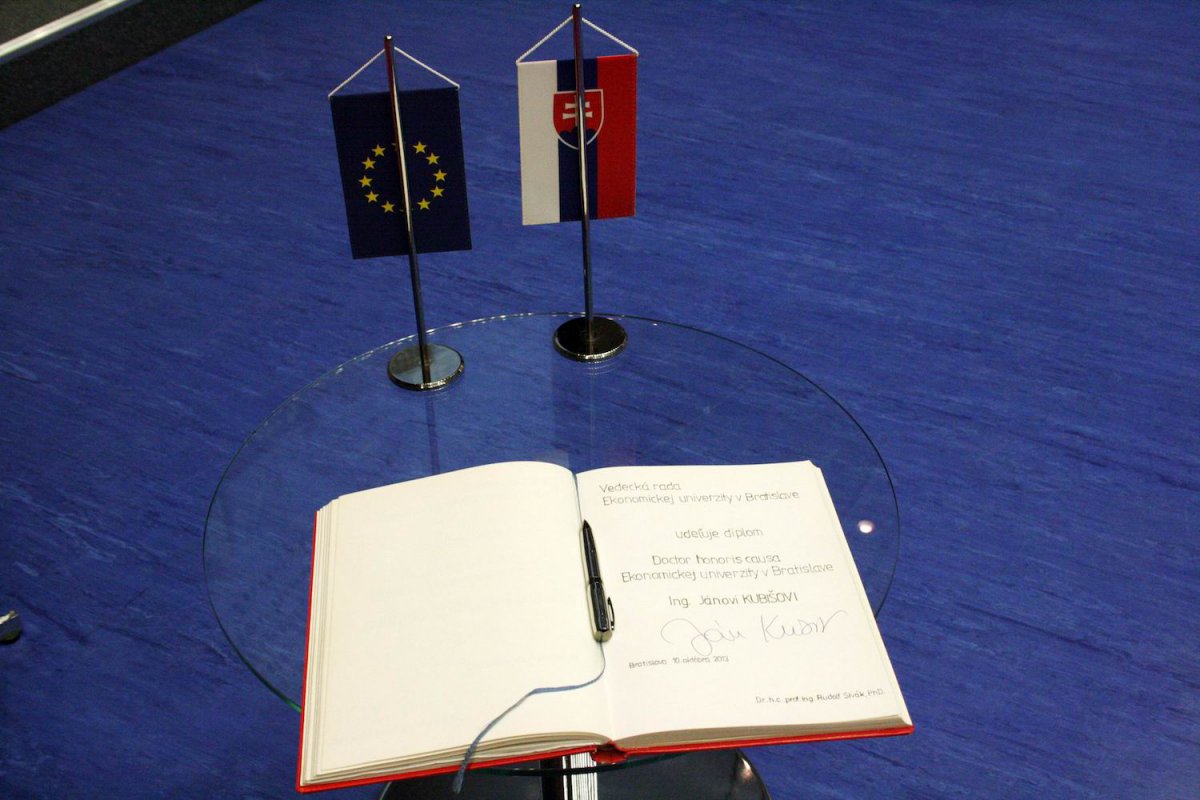 Vedecká rada
Ekonomickej univerzity v Bratislave
udeľuje diplom
Doctor honoris causa
Ekonomickej univerzity v Bratislave
Ing. Jánovi KUBIŠOVI
Ján Kubiš
Bratislava 10. októbra 2013
Dr. h. c. prof. Ing. Rudolf Sivák, PhD.